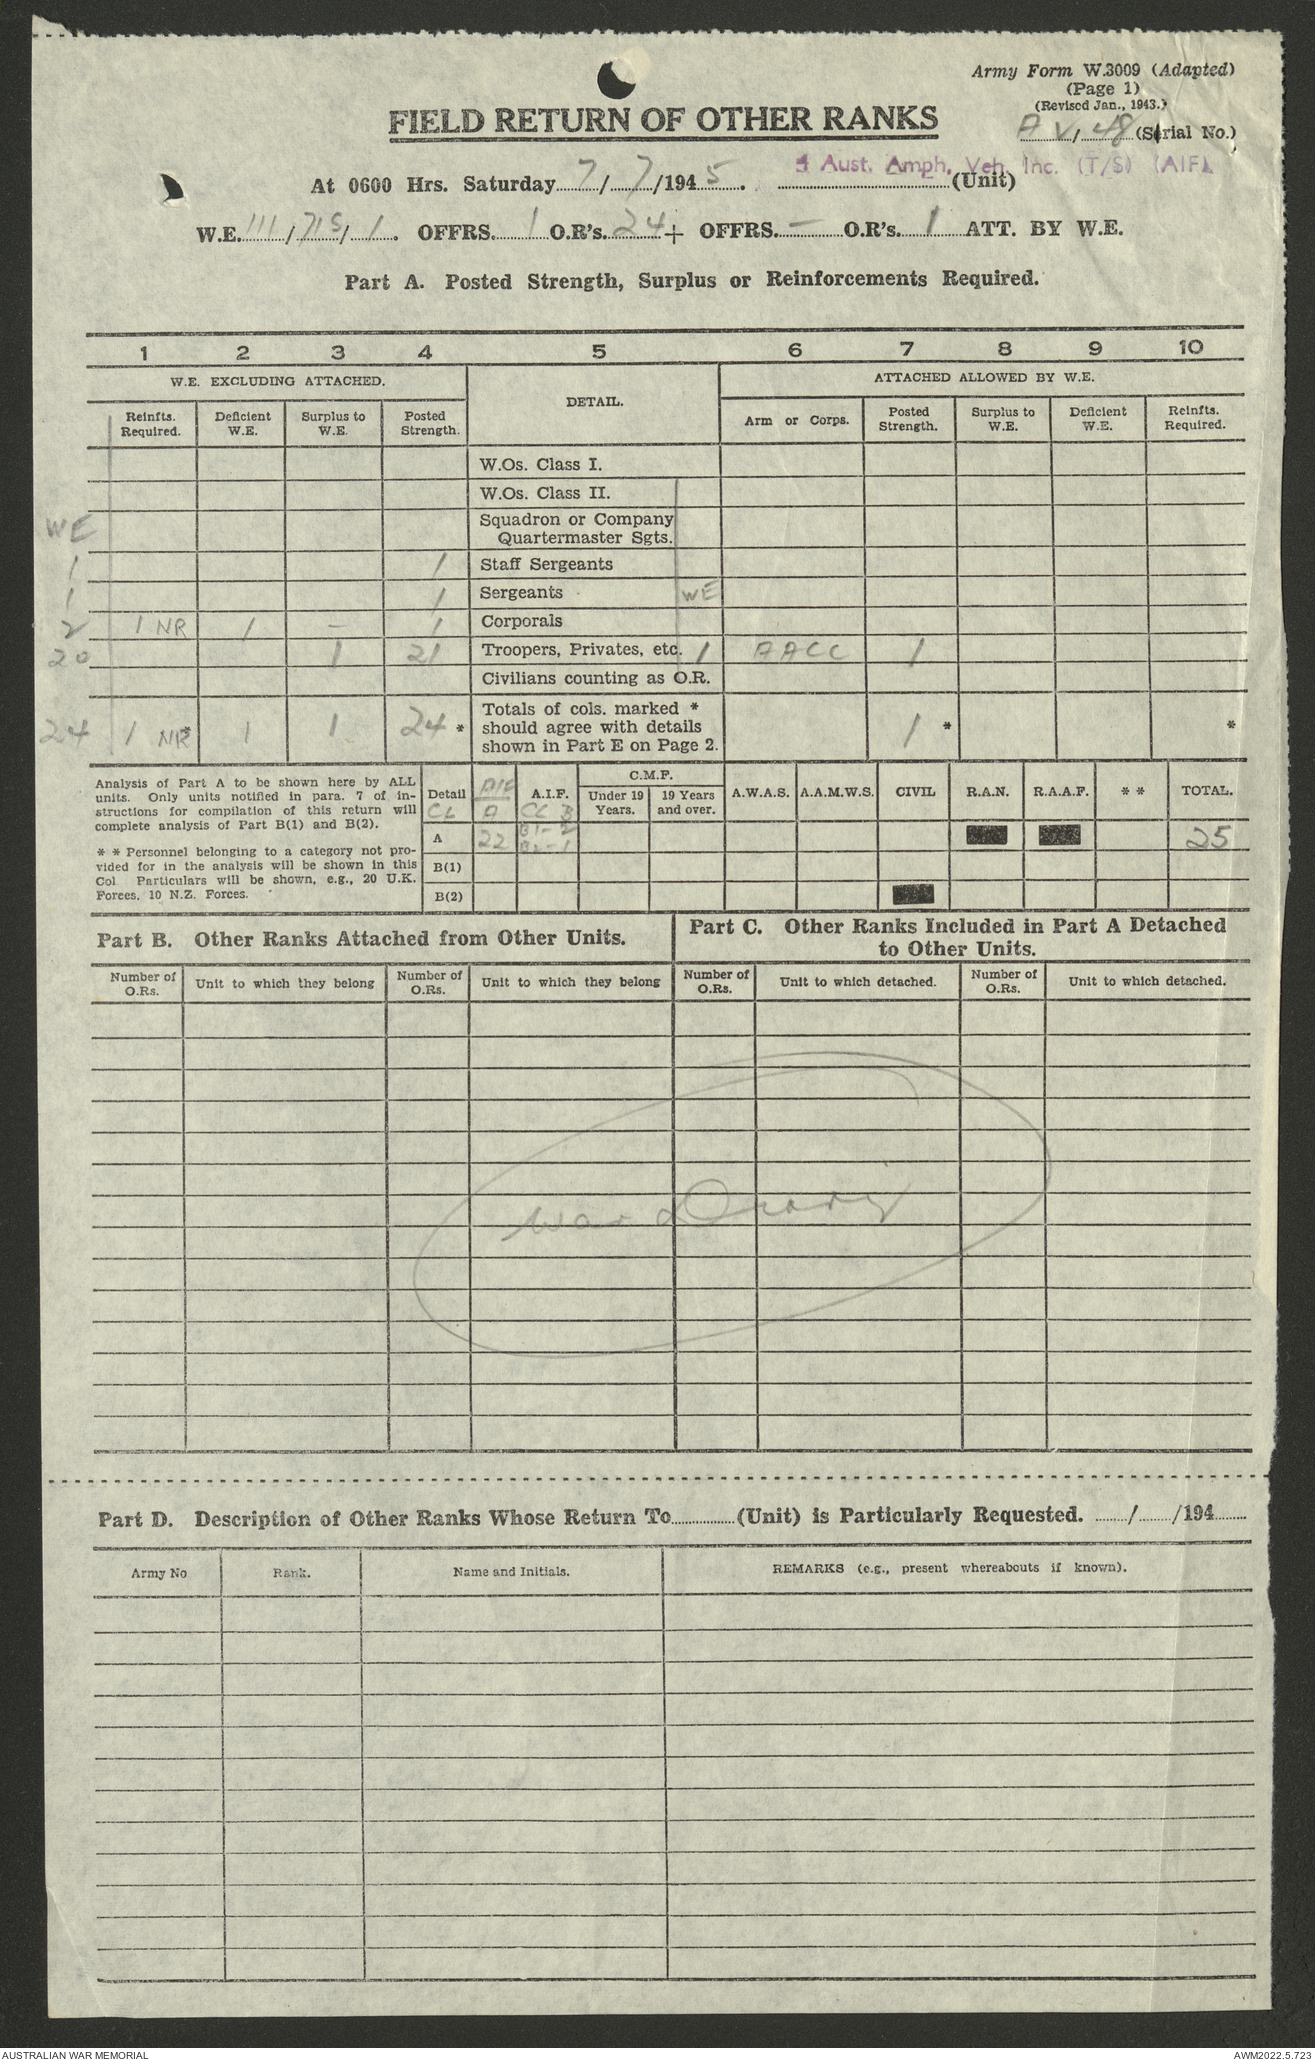 Army Form W.3009 (Adapted)
(Page 1)
(Revised Jan., 1943.)
FIELD RETURN OF OTHER RANKS
AV/48 (Serial No.)
Aust. Amph. Veh. Inc. (T/S) (AIF)
At 0600 Hrs. Saturday 7/7/1945. (Unit)
W.E. 111/715/1. OFFRS. 1 O.R's. 24 + OFFRS. - O.R's. 1 ATT. BY W.E.
Part A. Posted Strength, Surplus or Reinforcements Required.
1 2 3 4 5 6 7 8 9 10
W.E. EXCLUDING ATTACHED. DETAIL. ATTACHED ALLOWED BY W.E.
Reinfts. Required. Deficient W.E. Surplus to W.E. Posted Strength. Arm or Corps. Posted Strength. Surplus to W.E. Deficient W.E. Reinfts. Required.
W.Os. Class I.
W.Os. Class II.
WE Squadron or Company
Quartermaster Sgts.
1 1 Staff Sergeants
1 1 Sergeants WE
2 1 NR 1 - 1 Corporals
20 1 21 Troopers, Privates, etc. 1 AACC 1
Civilians counting as O.R.
24 1 NR* 1 1 24 * Totals of cols. marked * 1 * *
should agree with details
shown in Part E on Page 2.
Analysis of Part A to be shown here by ALL
units. Only units notified in para. 7 of in-
structions for compilation of this return will
complete analysis of Part B(1) and B(2).
* * Personnel belonging to a category not pro-
vided for in the analysis will be shown in this
Col Particulars will be shown, e.g., 20 U.K.
Forces, 10 N.Z. Forces.
Detail AIF A.I.F. C.M.F. Under 19 Years. 19 Years and over. A.W.A.S. A.A.M.W.S. CIVIL R.A.N. R.A.A.F. * * TOTAL.
CL A CL B
A 22 B1-2 B2-1 25
B(1)
B(2)
Part B. Other Ranks Attached from Other Units.
Part C. Other Ranks Included in Part A Detached
to Other Units.
Number of O.Rs. Unit to which they belong Number of O.Rs. Unit to which they belong Number of O.Rs. Unit to which detached. Number of O.Rs. Unit to which detached.
War Diary
Part D. Description of Other Ranks Whose Return To (Unit) is Particularly Requested. / /194
Army No Rank. Name and Initials. REMARKS (e.g., present whereabouts if known).
AUSTRALIAN WAR MEMORIAL AWM2022.5.723